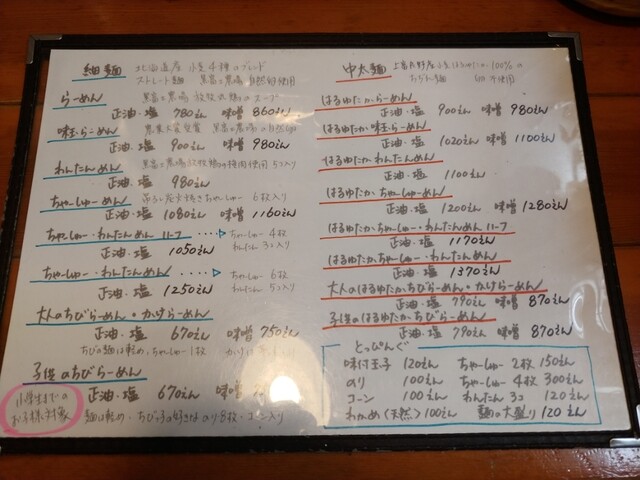 細麺 北海道産 小麦4種のブレンド
ストレート麺
らーめん
正油・塩 780えん 味噌 860えん
味玉らーめん
正油・塩 900えん 味噌 980えん
わんたんめん 5コ入り
正油・塩 980えん
ちゃーしゅーめん 6枚入り
正油・塩 1080えん 味噌 1160えん
ちゃーしゅー・わんたんめん ハーフ ちゃーしゅー 4枚
わんたん 3コ入り
正油・塩 1050えん
ちゃーしゅー・わんたんめん ちゃーしゅー 6枚
わんたん 5コ入り
正油・塩 1250えん
大人のちびらーめん・かけらーめん
正油・塩 670えん 味噌 750えん
ちび麺は軽め、ちゃーしゅー1枚
子供のちびらーめん
正油・塩 670えん 味噌
小学生までの
お子様対象
麺は軽め・
中太麺 100%の
はるゆたからーめん
正油・塩 900えん 味噌 980えん
はるゆたか味玉らーめん
正油・塩 1020えん 味噌 1100えん
はるゆたか・わんたんめん
正油・塩 1100えん
はるゆたか ちゃーしゅーめん
正油・塩 1200えん 味噌 1280えん
はるゆたかちゃーしゅー・わんたんめん ハーフ
正油・塩 1170えん
はるゆたかちゃーしゅー・わんたんめん
正油・塩 1370えん
大人のはるゆたかちびらーめん・かけらーめん
正油・塩 790えん 味噌 870えん
子供のはるゆたかちびらーめん
正油・塩 790えん 味噌 870えん
とっぴんぐ
味付玉子 120えん ちゃーしゅー 2枚 150えん
のり 100えん ちゃーしゅー 4枚 300えん
コーン 100えん わんたん 3コ 120えん
わかめ(天然) 100えん 麺の大盛り 120えん